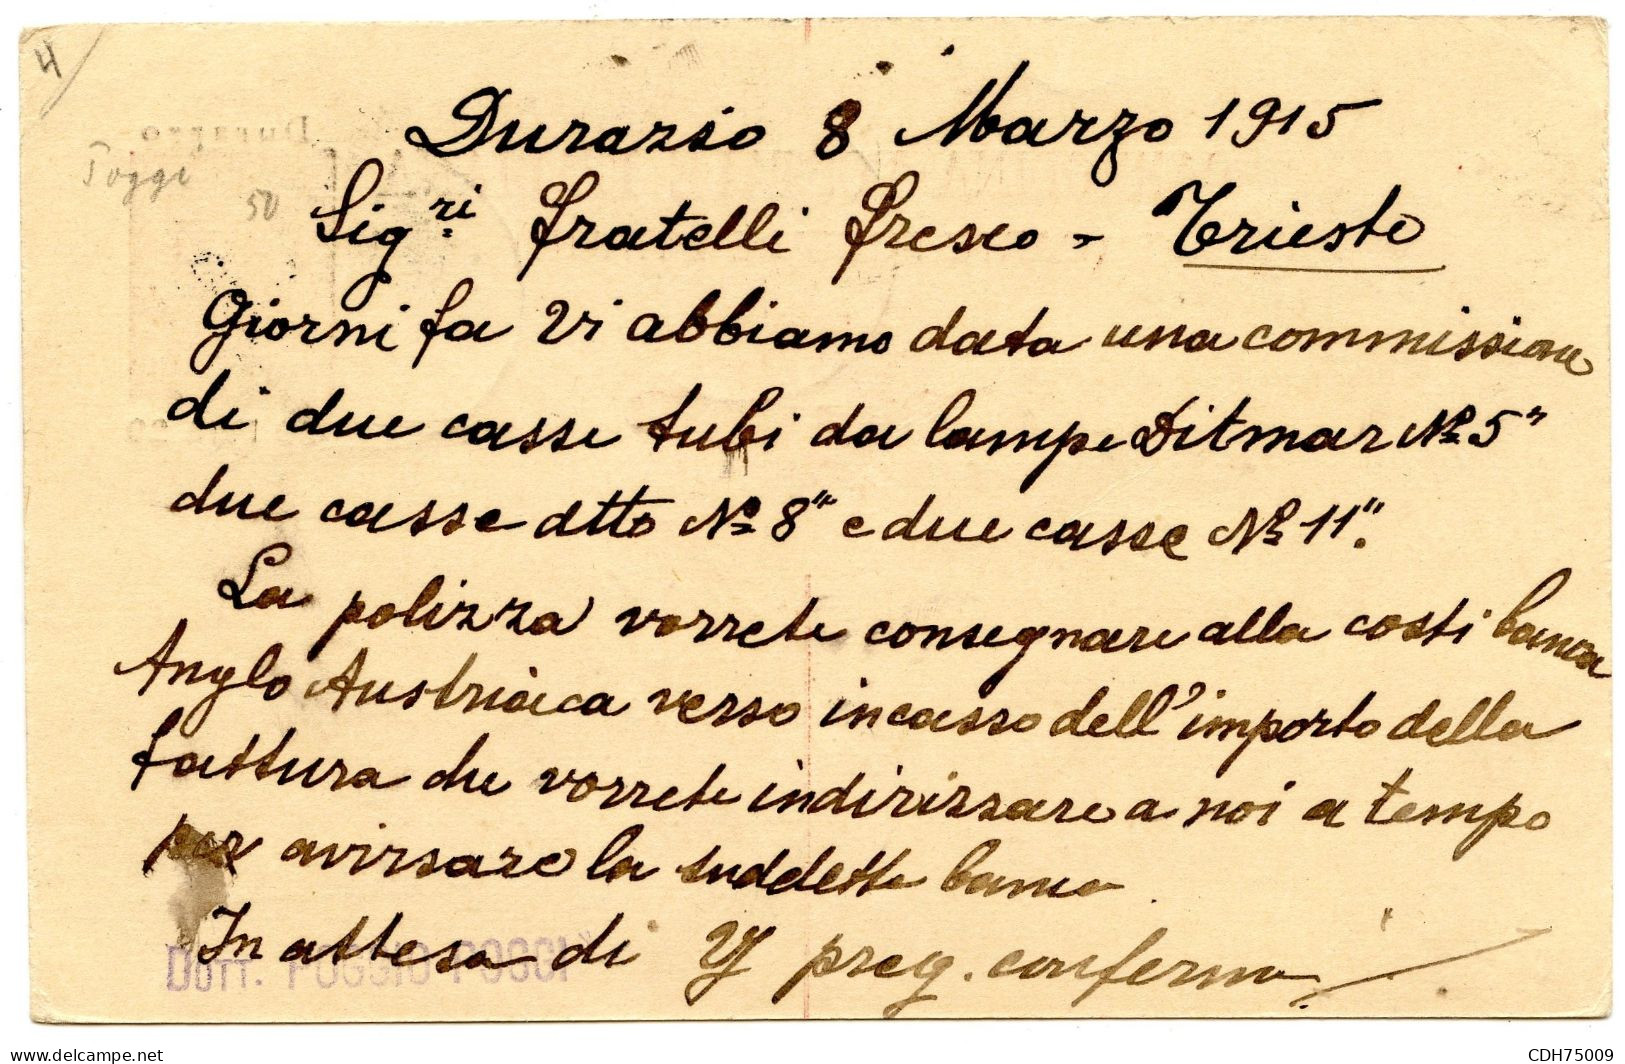 4
Durazzo 8 Marzo 1915
Poggi
50
Sig.ri fratelli fresco - Trieste
Giorni fa Vi abbiamo data una commissione
di due casse tubi da lampe Ditmar No 5"
due casse dtto No 8" e due casse No 11".
La polizza vorrete consegnare alla costi banca
Anglo Austriaca verso incasso dell'importo della
fattura che vorrete indirizzare a noi a tempo
per avissare la suddetta banca.
In attesa di Vs preg. conferma
DOTT. POGGIO POGGI
delcampe.net
CDH75009